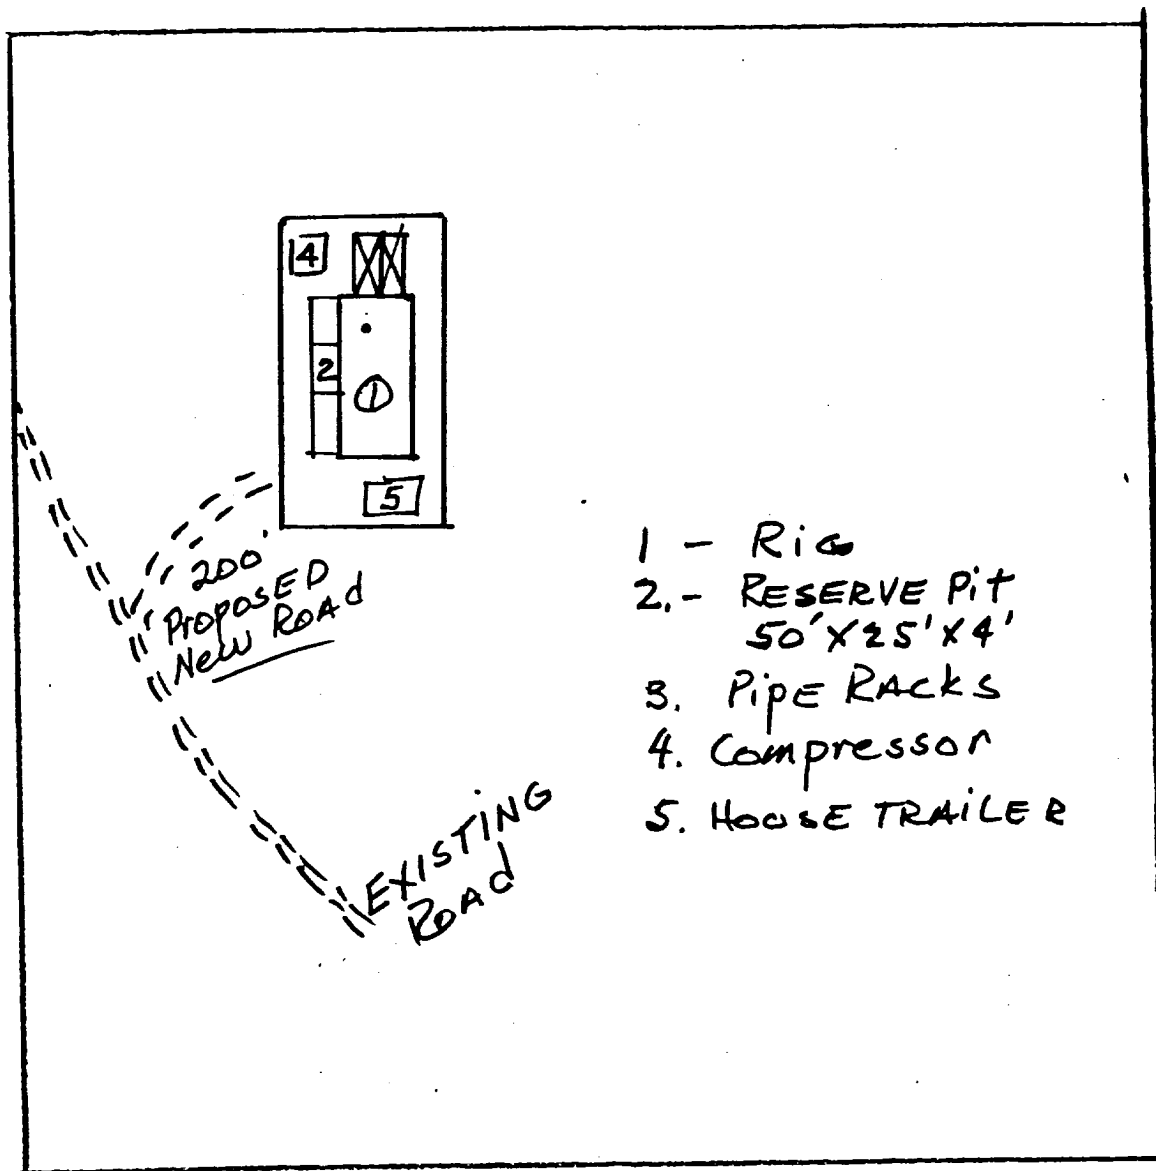 4
2
1
5
200'
PROPOSED
New ROAd
EXISTING
ROAd
1 - Rig
2.- RESERVE Pit
50' X 25' X 4'
3. PipE RACKS
4. Compressor
5. HOUSE TRAILER